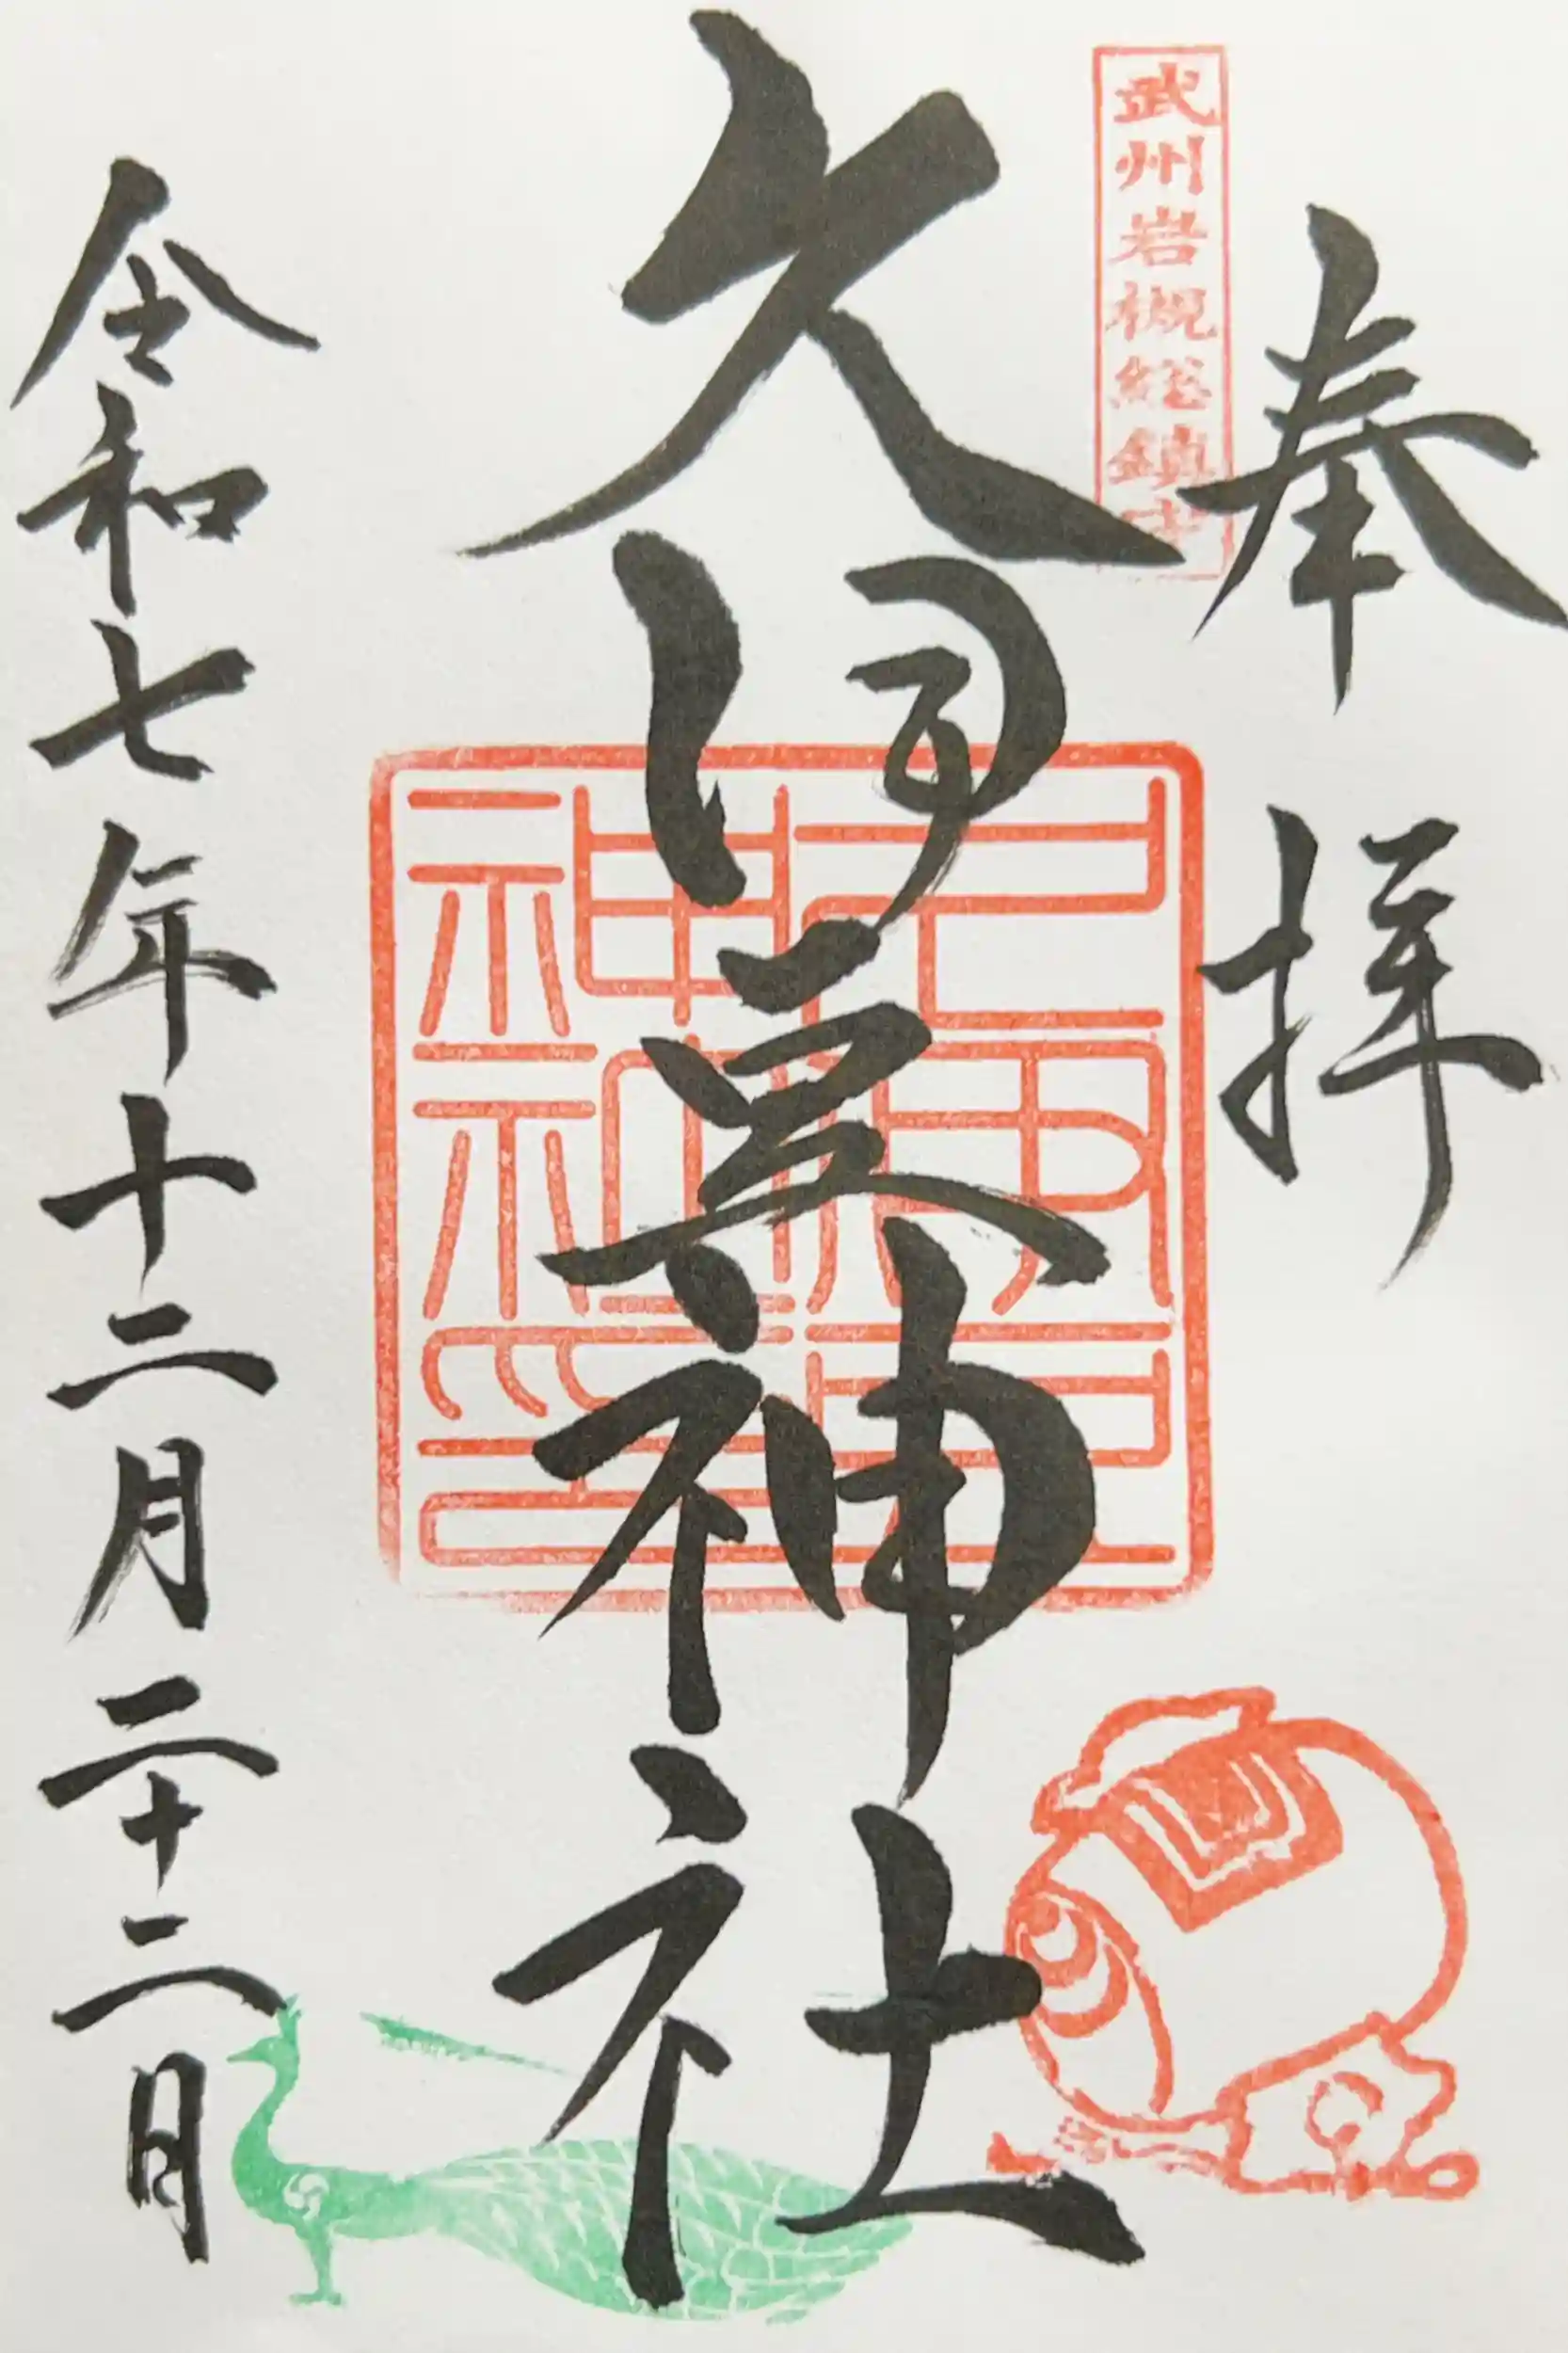 奉拝
武州岩槻総鎮守
久伊豆神社
久伊豆神社印
令和七年十二月二十二日